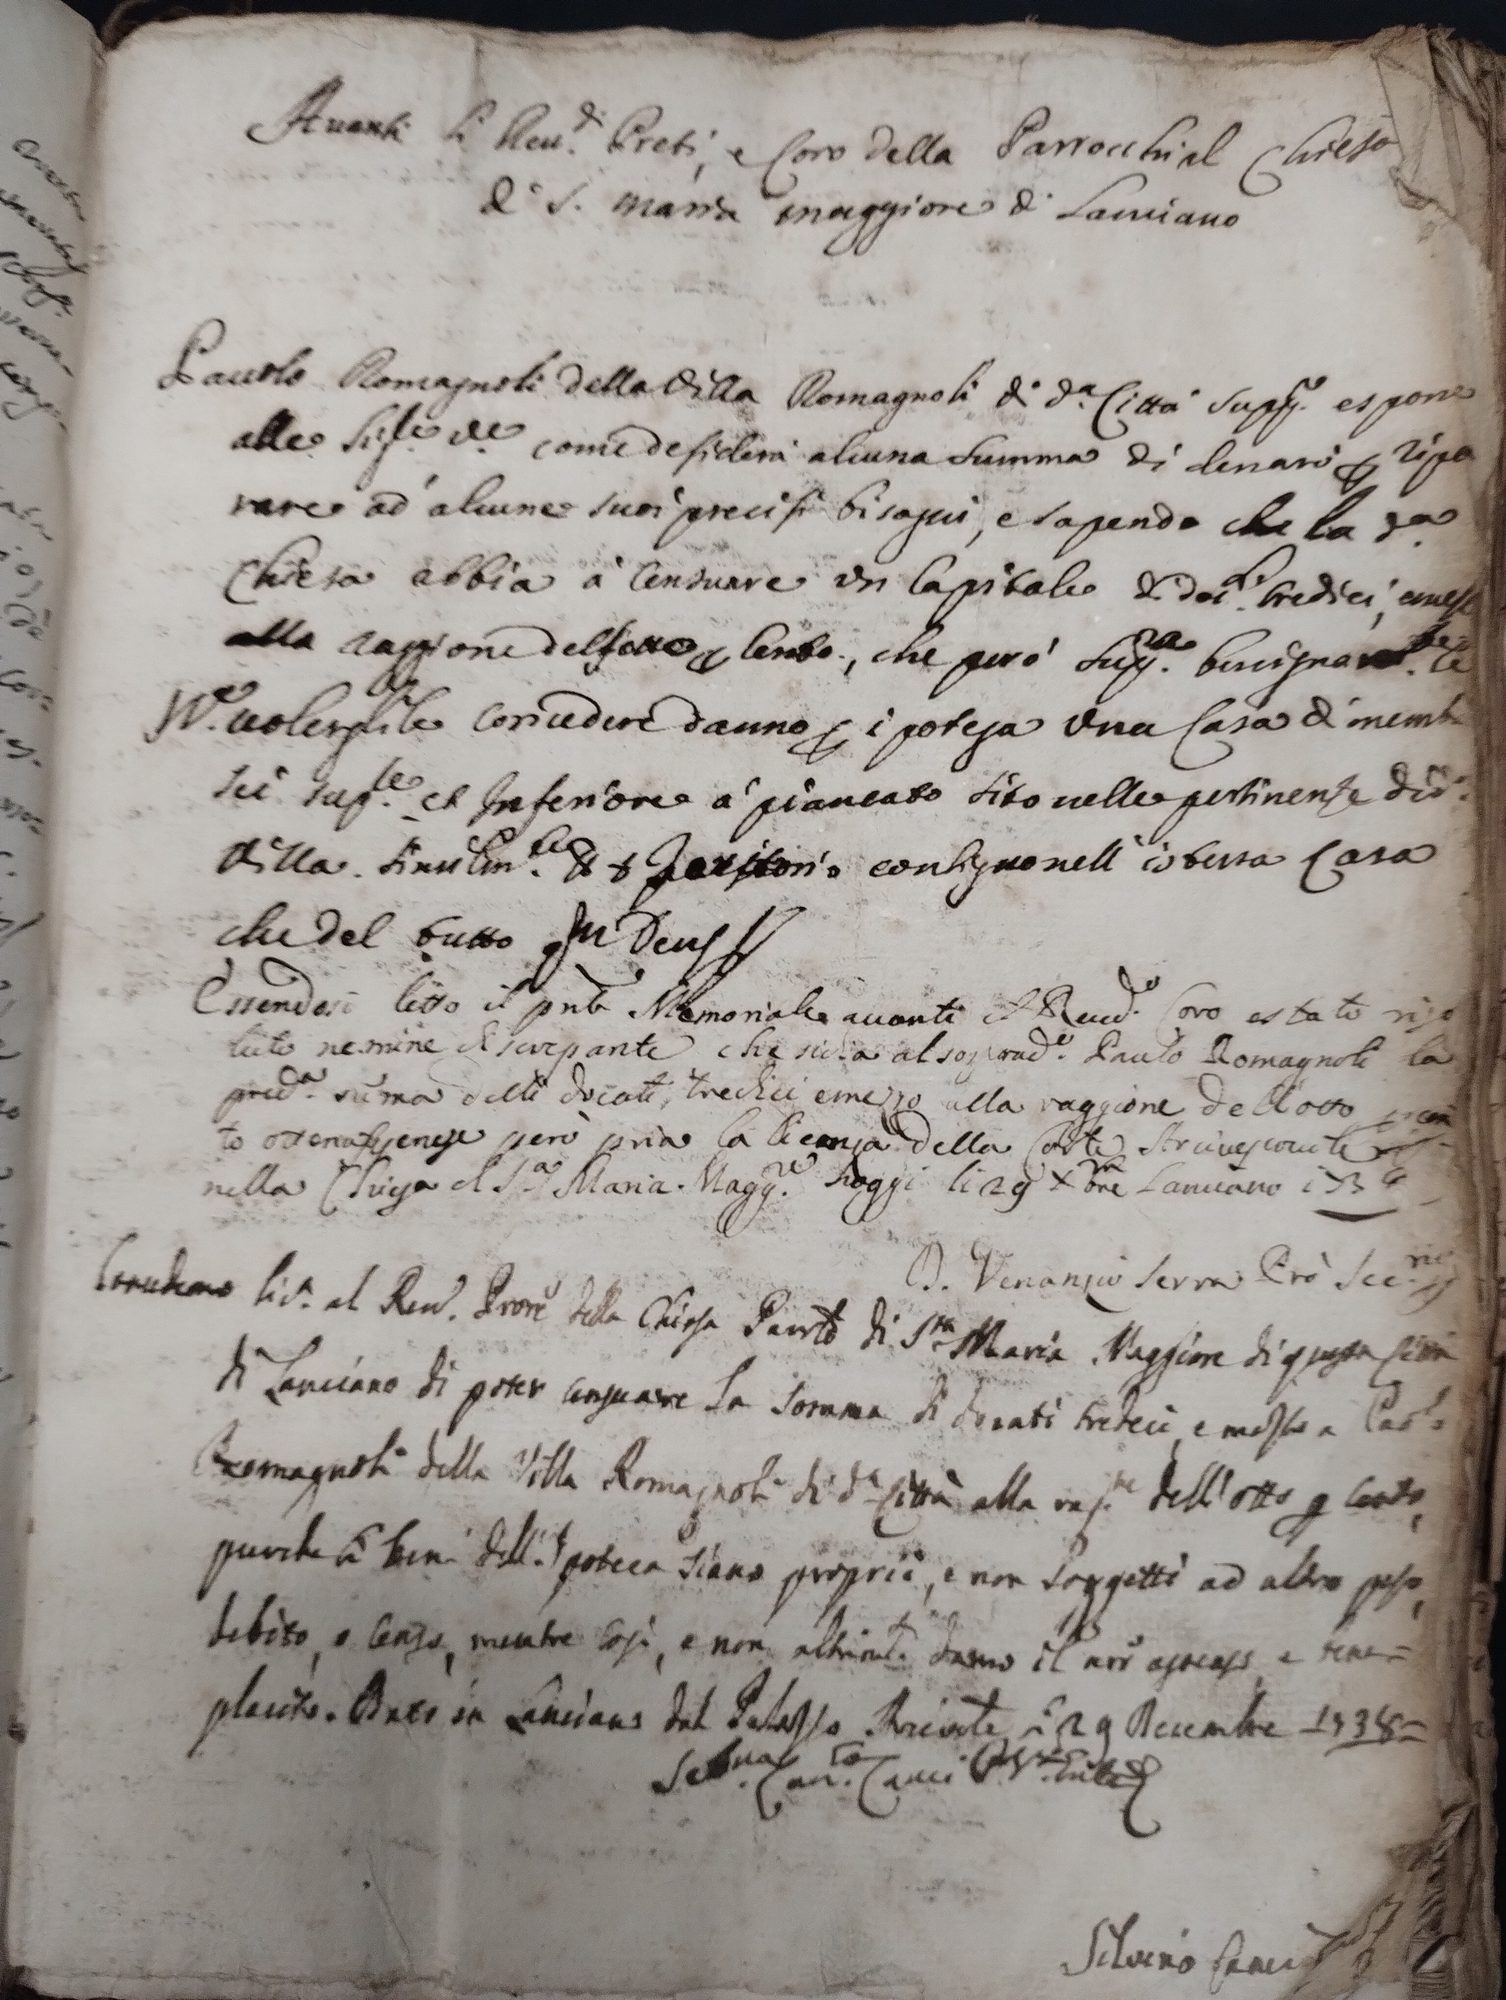 Avanti li Reu.di Preti, e Coro della Parrocchial Chiesa
di S. Maria maggiore di Lanciano
Pauolo Romagnoli della Villa Romagnoli di d.a Città supp.e espone
alle Sig.rie V.e come desidera alcuna summa di denari ripa
rare ad alcune suoi precisi bisogni, e sapendo che la d.a
Chiesa abbia à censuare un Capitale di doc.ti tredici, emezo
alla raggione dell'otto p cento, che però supp.ca benignam.te le
W.e uolersili concedere danno p ipoteja una Casa di membri
sei sup.re et Inferiore à piancato sito nelle pertinenze di d.a
Villa contiguo nell'istessa Casa
che del tutto Ut Deus
Essendosi letto il pnte Memoriale auanti il Reued.o Coro è stato riso
luto nemine discrepante che si dia al sopradº. Paulo Romagnoli la
pred.a suma delli docati tredici emezzo alla raggione dell'otto p cen
to ottenass però pria la licenza della Corte Arciuescouile
nella Chiesa di S.a Maria Magg.re hoggi li 29 Xbre Lanciano
D. Venanzio Serra Prò Sec.rio
Concedemo lic.a al Reu. Prore della Chiesa Parrle di S.ta Maria Maggiore di questa Città
di Lanciano di poter censuare la somma di docati tredeci, e mezzo a Paolo
Romagnoli della Villa Romagnoli di d.a Città alla rag.ne dell'otto p cento,
purche li beni dell'Ipoteca siano proprii, e non soggetti ad altro peso,
debito, o censo, mentre così, e non altrim.te damo il nrõ assenso, e bene=
placito. Dato in Lanciano dal Palazzo Arciule li 29 Decembre
Silvino Canci